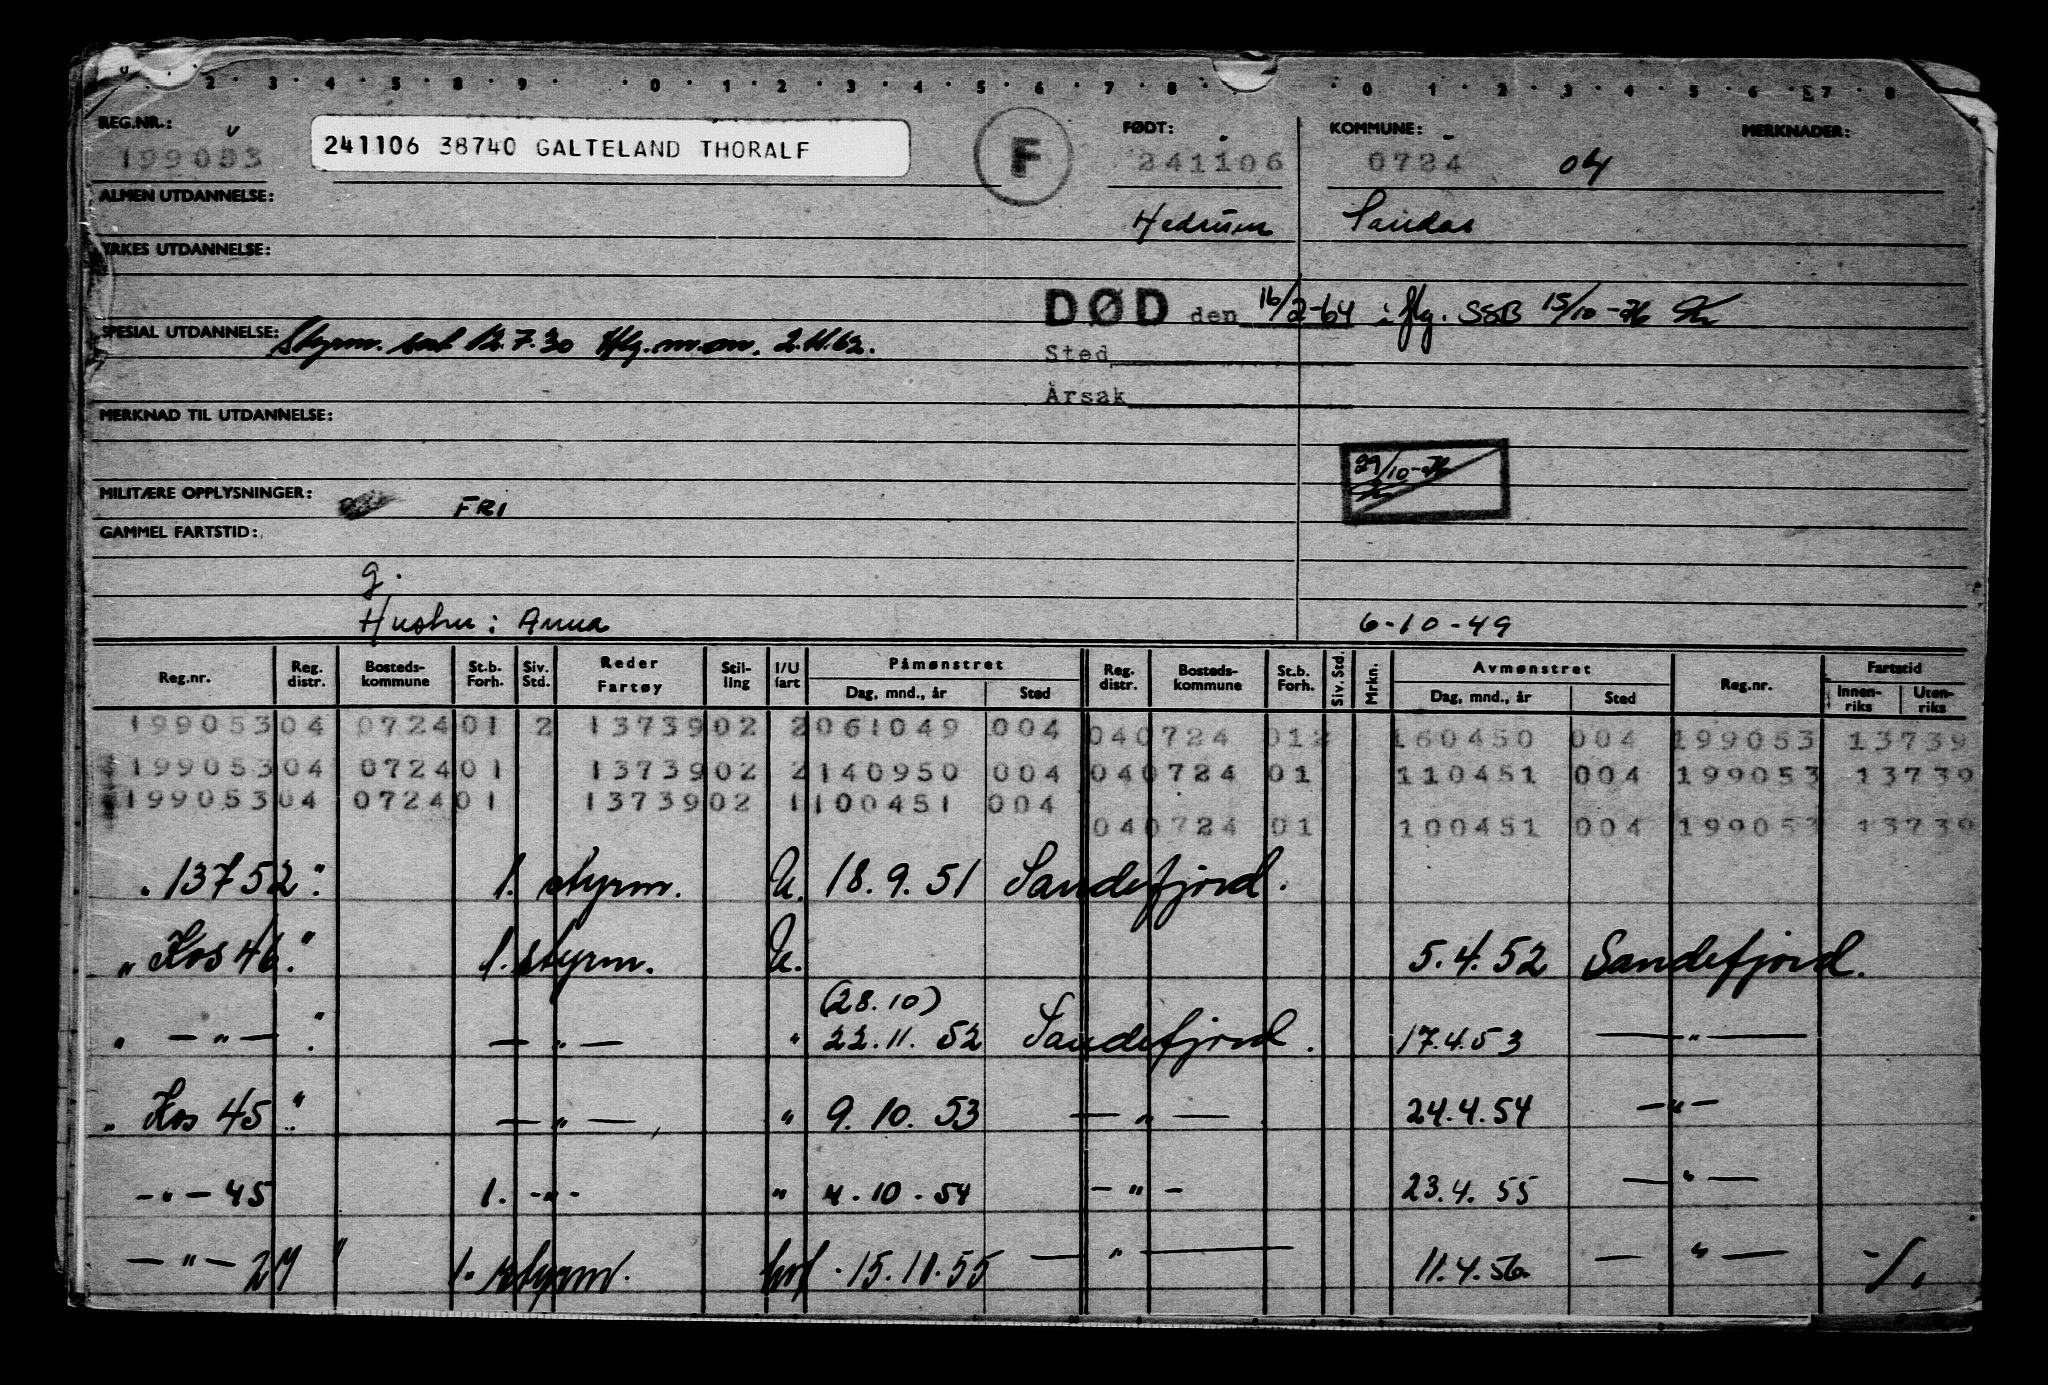 REG.NR.: FØDT: KOMMUNE: MERKNADER:
199053 241106 38740 GALTELAND THORALF F 241106 0724 04
ALMEN UTDANNELSE: Hedrum Sandar
YRKES UTDANNELSE:
DØD den 16/2-64 i flg. SSB 15/10-76
SPESIAL UTDANNELSE: Styrm. sert 12.7.30 2.11.62.
Sted
Årsak
MERKNAD TIL UTDANNELSE:
29/10-76
MILITÆRE OPPLYSNINGER: FRI
GAMMEL FARTSTID:
g.
Hustru: Anna 6-10-49
Reg.nr. Reg. distr. Bosteds-kommune St.b. Forh. Siv. Std. Reder Fartøy Stil-ling I/U fart Påmønstret Dag, mnd., år Sted Reg. distr. Bosteds-kommune St.b. Forh. Siv. Std. Mrkn. Avmønstret Dag, mnd., år Sted Reg.nr. Fartstid Innen-riks Uten-riks
199053 04 0724 01 2 13739 02 2 061049 004 04 0724 01 2 160450 004 199053 13739
199053 04 0724 01 13739 02 2 140950 004 04 0724 01 110451 004 199053 13739
199053 04 0724 01 13739 02 1 100451 004
04 0724 01 100451 004 199053 13739
" 13752 " 1. styrm. U. 18.9.51 Sandefjord.
" Kos 46." 1. styrm. U. 5.4.52 Sandefjord.
(28.10)
" — " — " — " — " 22.11.52 Sandefjord. 17.4.53 — " —
" Kos 45 " — " — " 9.10.53 — " — 24.4.54 — " —
— " — 45 1. - " - " 4.10.54 — " — 23.4.55 — " —
— " — 27 " 1. styrm. hvf. 15.11.55 — " — 11.4.56 — " —